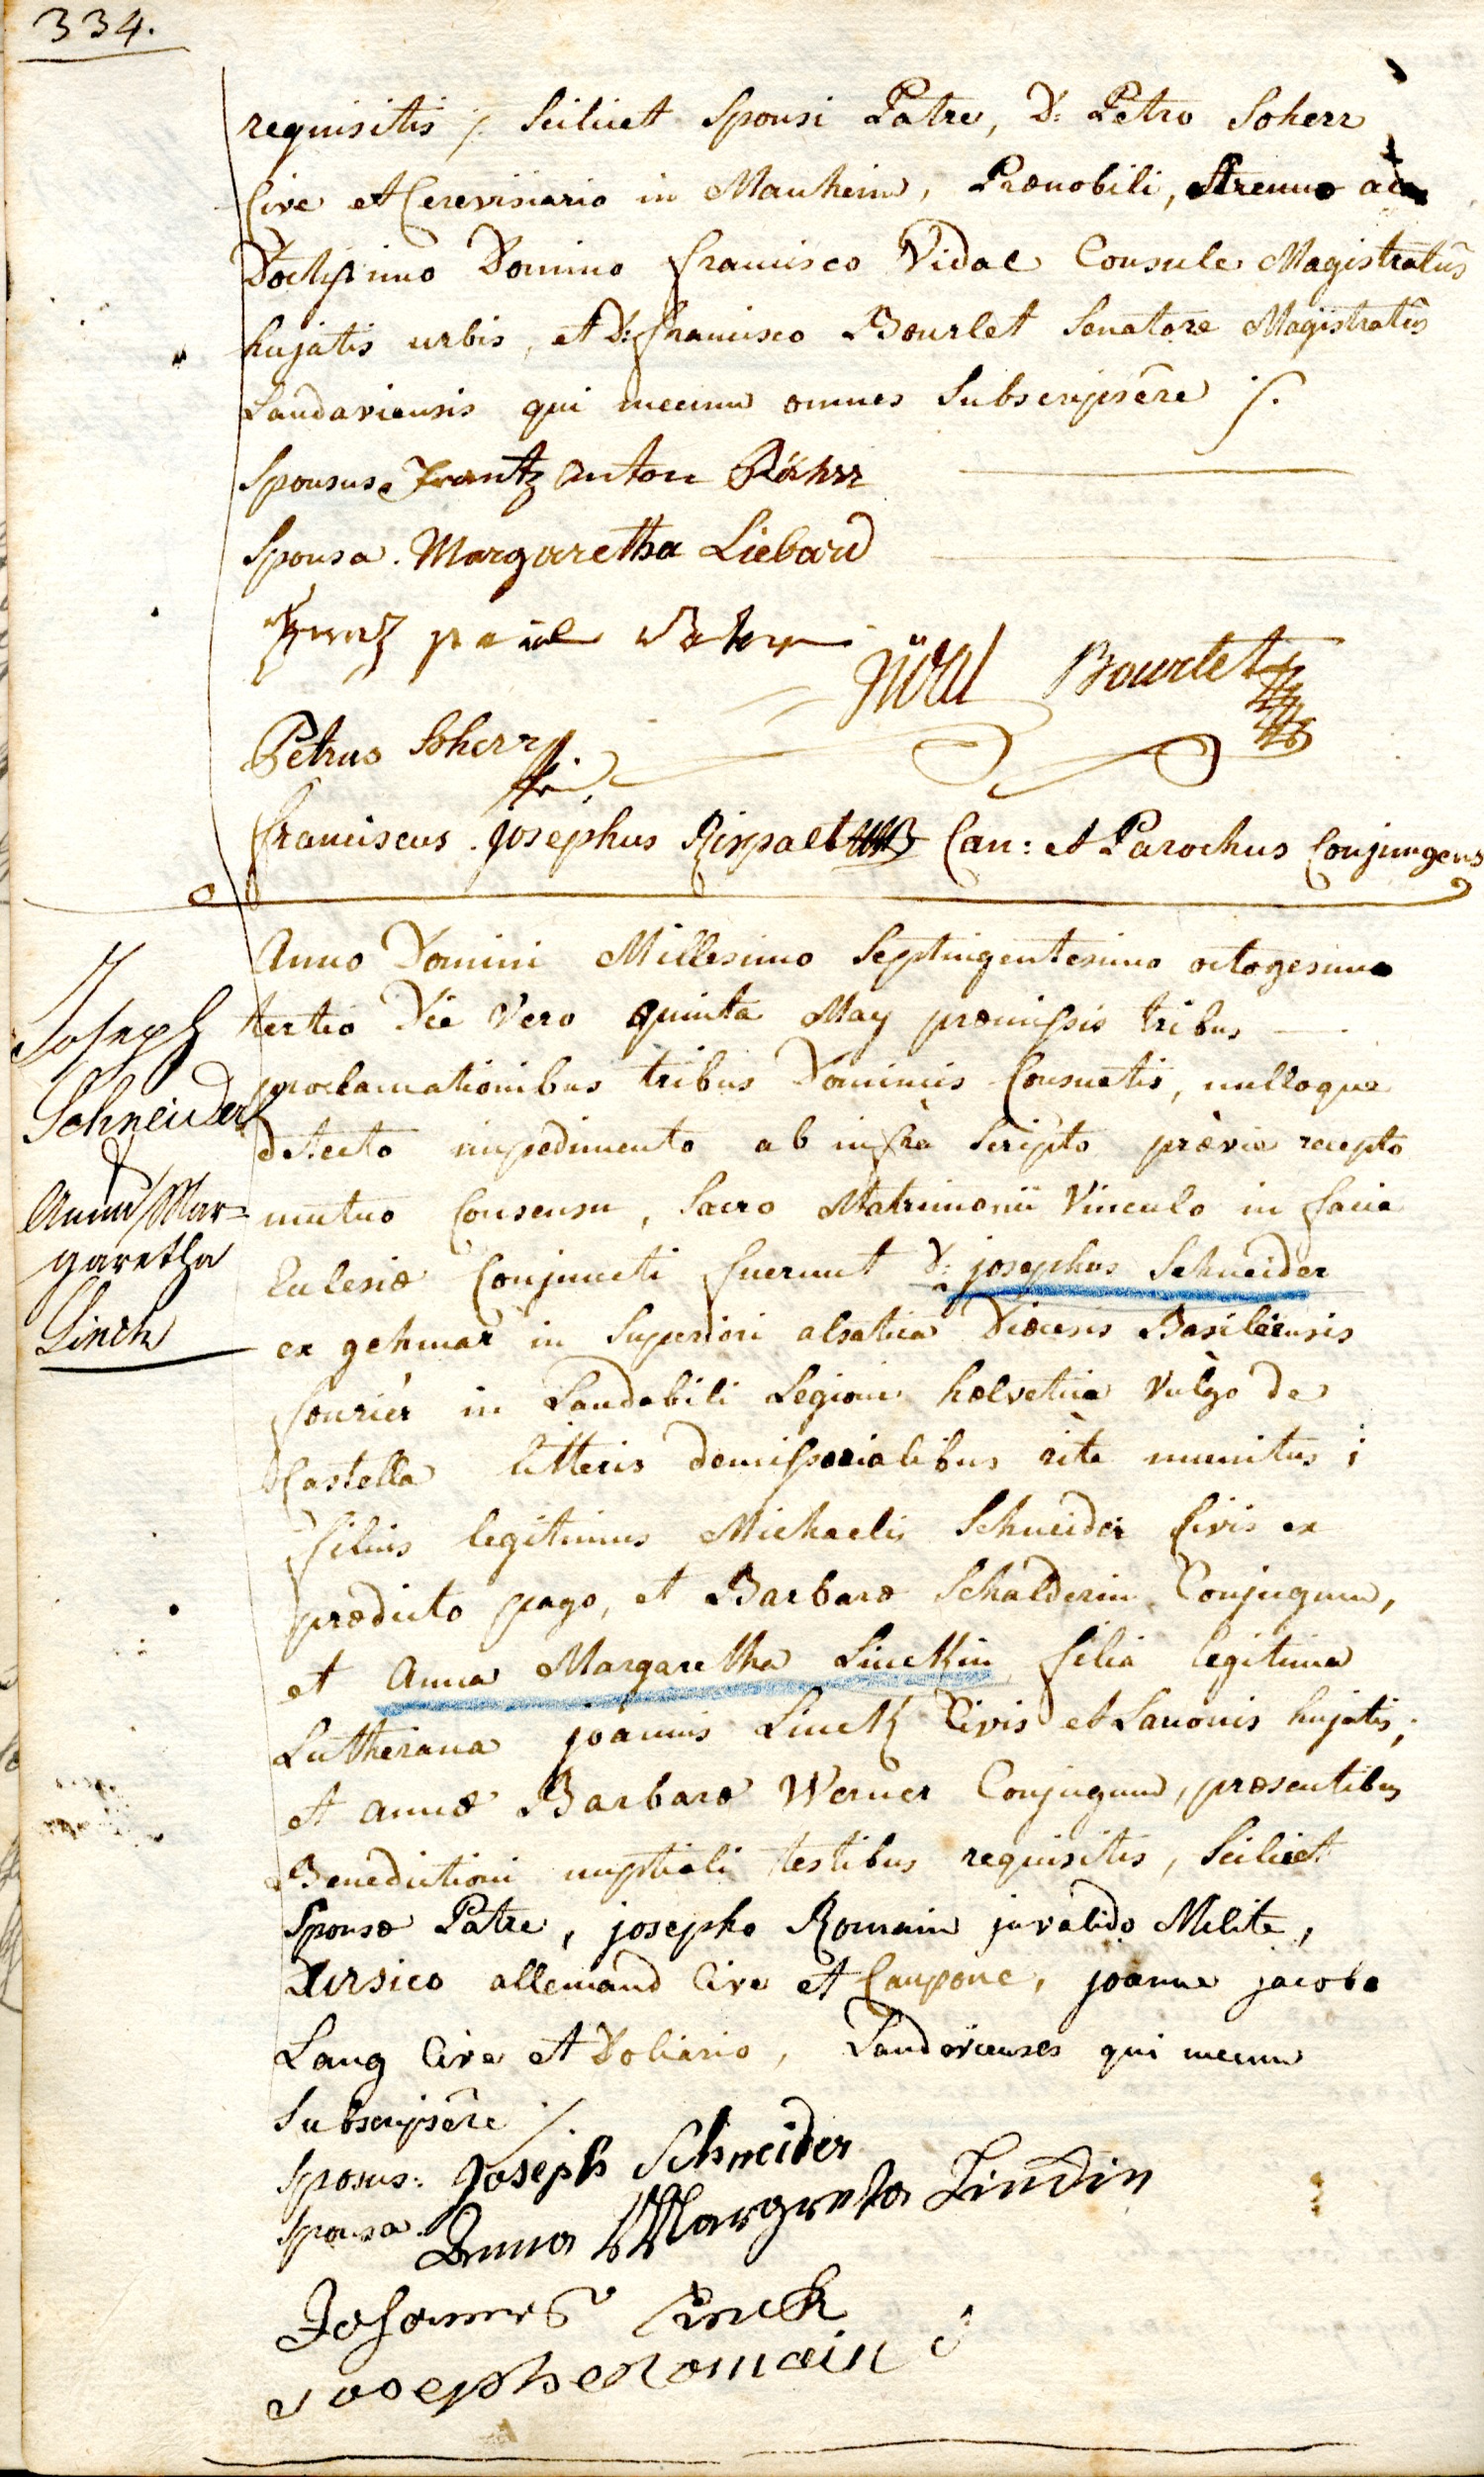 334.
requisitis /. Scilicet Sponsi Patre, D: Petro Soherr
Cive et Cerevisiario in Manheim, Prænobili, Strenuo ac
Doctissimo Domino Francisco Vidal Consule Magistratûs
hujatis urbis, et D: Francisco Bourlet Senatore Magistratûs
Landaviensis qui mecum omnes Subscripsêre /.
Sponsus Frantz Anton Röhrr
Sponsa. Margaretha Liebard
Frantz paul
Bourlet
Petrus Soherr
Franciscus Josephus Rispalt Can: et Parochus Conjungens
Joseph
Schneider
&
Anna Mar=
garetha
Linck
Anno Domini Millesimo Septingentesimo octogesimo
tertio Die Vero quinta May præmissis tribus
proclamationibus tribus Dominicis Consuetis, nulloque
detecto impedimento ab infrà Scripto prævie recepto
mutuo Consensu, Sacro Matrimonii Vinculo in facie
Eclesiæ Conjuncti fuerunt D: josephus Schneider
ex gehmar in Superiori alsatia Diœcesis Basileensis
fourier in Laudabili Legione hælvetica vulgo de
Castella litteris demissorialibus ritè munitus;
filius legitimus Michaelis Schneider Civis ex
prædicto pago, et Barbaræ Schalderin Conjugum,
et Anna Margaretha Linckin filia legitima
Lutherana joannis Linck Civis et Lanonis hujatis;
et annæ Barbaræ Werner Conjugum, præsentibus
Benedictioni nuptiali testibus requisitis, Scilicet
Sponsæ Patre, josepho Romain invalido Milite,
Ursico allemand Cive et Caupone, joanne jacobo
Lang Cive et Doliario, Landavienses qui mecum
Subscripsêre /.
Sponsus: Joseph Schneider
Sponsa. Anna Margreta Linckin
Johannes Linck
Joseph Romain